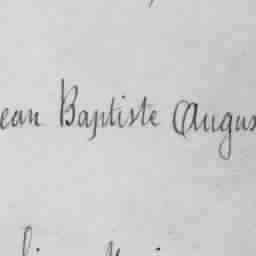 ean Baptiste Augus